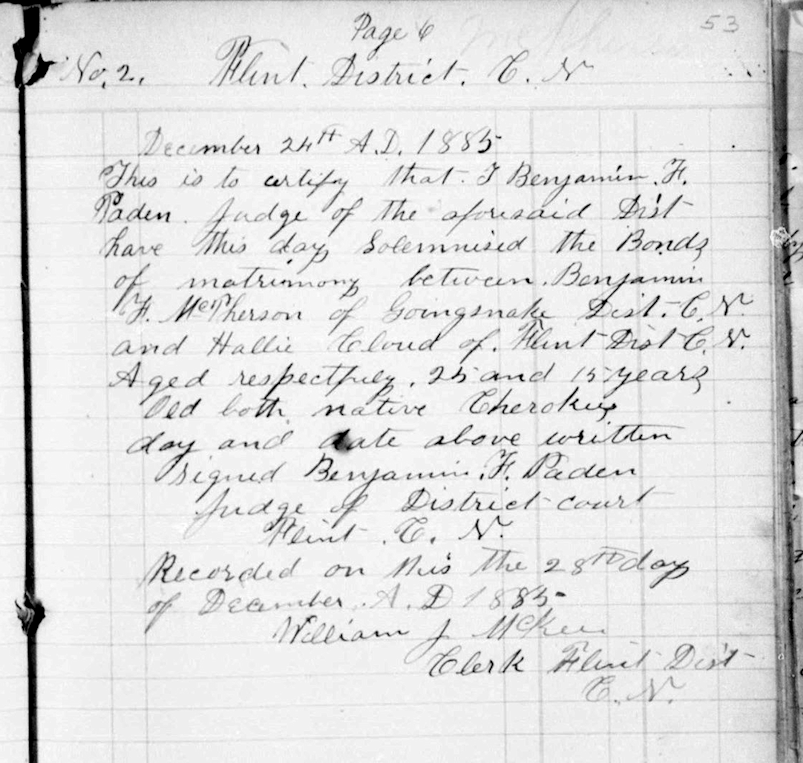 Page 6
53
No. 2. Flint District. C. N
December 24th A.D. 1885
This is to certify that I Benjamin. F.
Paden. Judge of the aforesaid Dist
have this day Solemnised the Bonds
of matrimony between Benjamin
F. McPherson of Goingsnake Dist. C. N.
and Hallie Cloud of Flint Dist C. N.
Aged respectfuly. 25 and 15 years
Old both native Cherokees
day and date above written
signed Benjamin. F. Paden
Judge of District court
Flint. C. N.
Recorded on this the 28th day
of December. A. D 1885
William J McKee
Clerk Flint Dist
C. N.